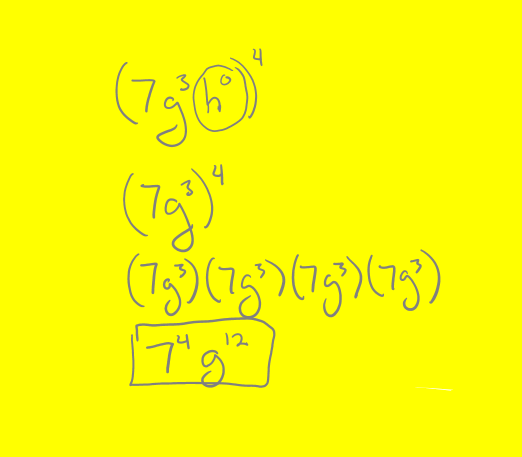 (7g³h⁰)⁴
(7g³)⁴
(7g³)(7g³)(7g³)(7g³)
7⁴g¹²